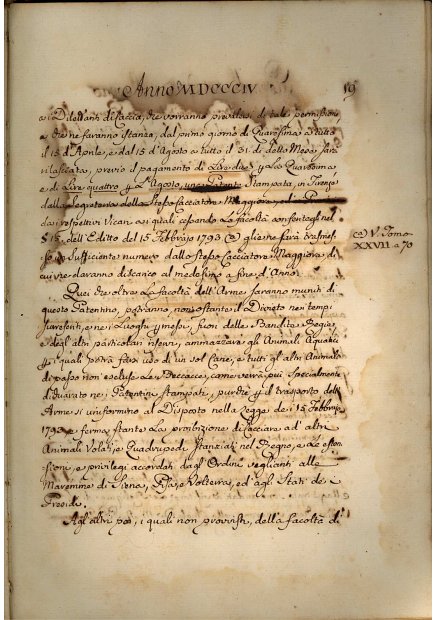 Anno MDCCCIV
19
ai Dilettanti di Caccia, che vorranno prevalersi di tale permissione
e che ne faranno istanza, dal primo giorno di Quaresima a tutto
il 15 d'Aprile, e dal 15 d'Agosto a tutto il 31 di detto Mese sarà
rilasciata, previo il pagamento di Lire due p la Quaresima
e di Lire quattro p l'Agosto, una Patente Stampata, in Firenze
dalla Segreteria dello stesso Cacciatore Maggiore, ed in
dai respettivi Vicari ai quali cessando la facoltà
§ 15. dell'Editto del 15 Febbrajo 1793 @ gliene sarà trasmes-
so un sufficiente numero dallo stesso Cacciatore Maggiore di
cui ne daranno discarico al medesimo a fine d'Anno.
@ V. Tomo
XXVII a 70
Quei che oltre la facoltà dell'Arme saranno muniti di
questo Patentino, potranno, nonostante il Divieto nei tempi
suriferiti, e nei Luoghi permessi, fuori delle Bandite Regie
e degl'altri particolari riservi, ammazzare gli Animali Aquatici
p i quali potrà farsi uso di un sol Cane, e tutti gl'altri Animali
di passo non escluse le Beccacce, come verrà più specialmente
dichiarato nei Patentini stampati, purchè p il trasporto dell'
Arme si uniformino al Disposto nella Legge de' 15 Febbrajo
1793 e ferma stante la proibizione di Cacciare ad altri
Animali Volatili e Quadrupedi Stanziali nel Regno, e le esten-
sioni, e privilegi accordati dagl'Ordini veglianti alle
Maremme di Siena, Pisa, e Volterra, ed agli Stati de
Presidi.
Agl'altri poi, i quali non provvisti, della facoltà di